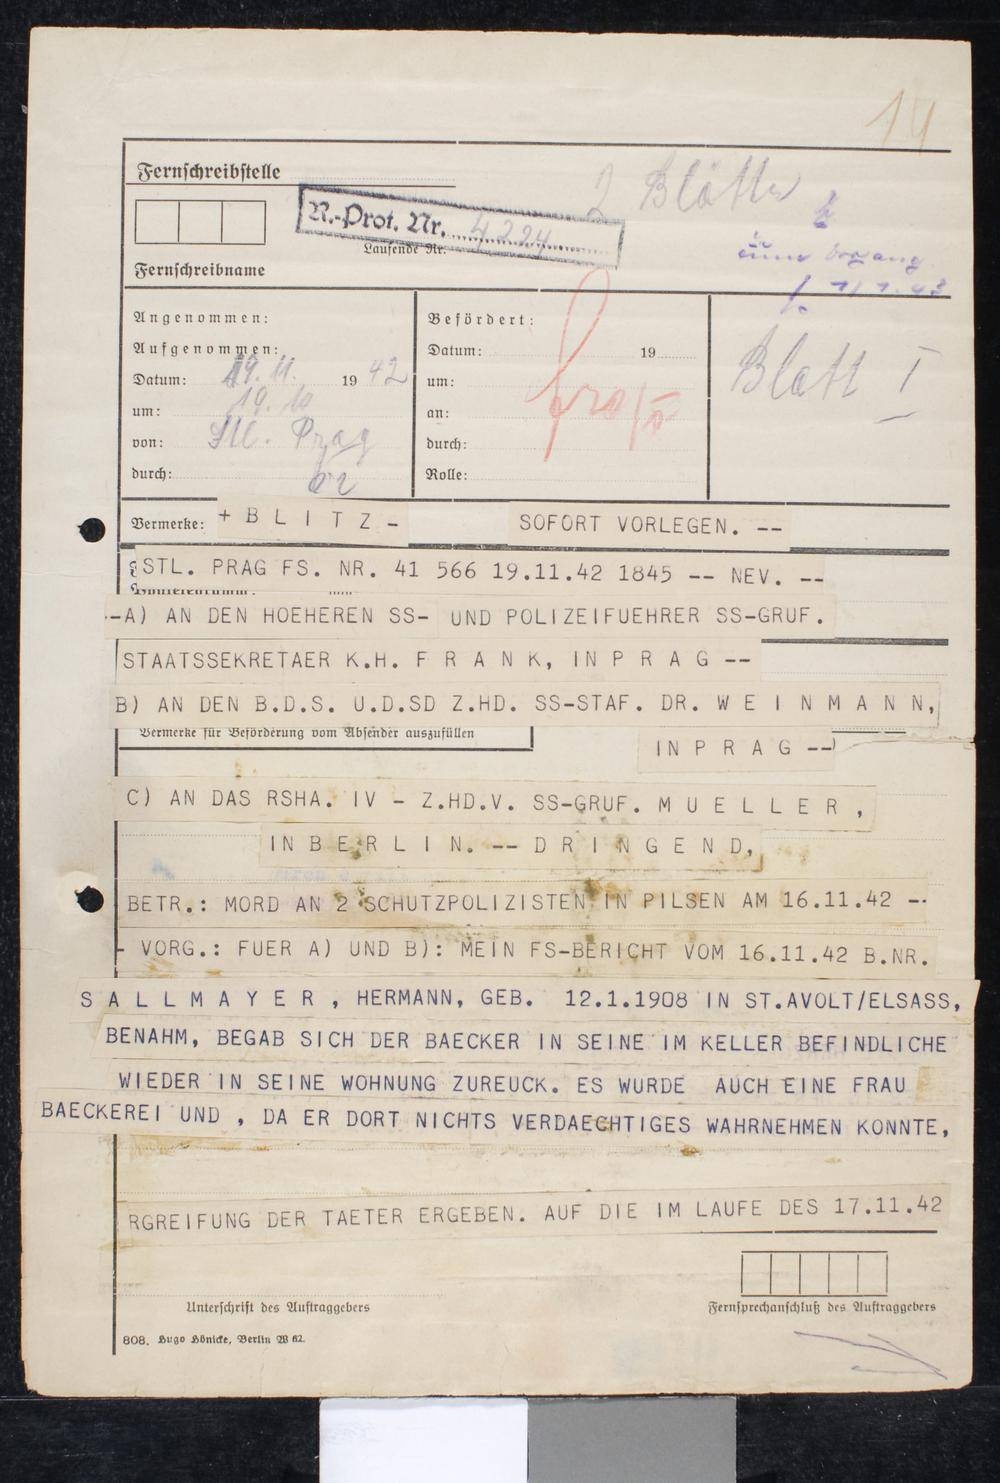 14
Fernschreibstelle
2 Blätter
N.-Prot. Nr. 4224
Laufende Nr.
Fernschreibname
zum Vorgang
Angenommen:
Aufgenommen:
Datum: 19.11. 19 42
um: 19.10
von: Stl. Prag
durch:
Befördert:
Datum: 19
um:
an:
durch:
Rolle:
Blatt I
Vermerke: + B L I T Z - SOFORT VORLEGEN. --
STL. PRAG FS. NR. 41 566 19.11.42 1845 -- NEV. --
--A) AN DEN HOEHEREN SS- UND POLIZEIFUEHRER SS-GRUF.
STAATSSEKRETAER K.H. F R A N K, IN P R A G --
B) AN DEN B.D.S. U.D.SD Z.HD. SS-STAF. DR. W E I N M A N N,
Vermerke für Beförderung vom Absender auszufüllen
IN P R A G --
C) AN DAS RSHA. IV - Z.HD.V. SS-GRUF. M U E L L E R ,
IN B E R L I N. -- D R I N G E N D,
BETR.: MORD AN 2 SCHUTZPOLIZISTEN IN PILSEN AM 16.11.42 --
- VORG.: FUER A) UND B): MEIN FS-BERICHT VOM 16.11.42 B.NR.
S A L L M A Y E R , HERMANN, GEB. 12.1.1908 IN ST.AVOLT/ELSASS,
BENAHM, BEGAB SICH DER BAECKER IN SEINE IM KELLER BEFINDLICHE
WIEDER IN SEINE WOHNUNG ZUREUCK. ES WURDE AUCH EINE FRAU
BAECKEREI UND , DA ER DORT NICHTS VERDAECHTIGES WAHRNEHMEN KONNTE,
RGREIFUNG DER TAETER ERGEBEN. AUF DIE IM LAUFE DES 17.11.42
Unterschrift des Auftraggebers
Fernsprechanschluß des Auftraggebers
808. Hugo Hönicke, Berlin W 62.